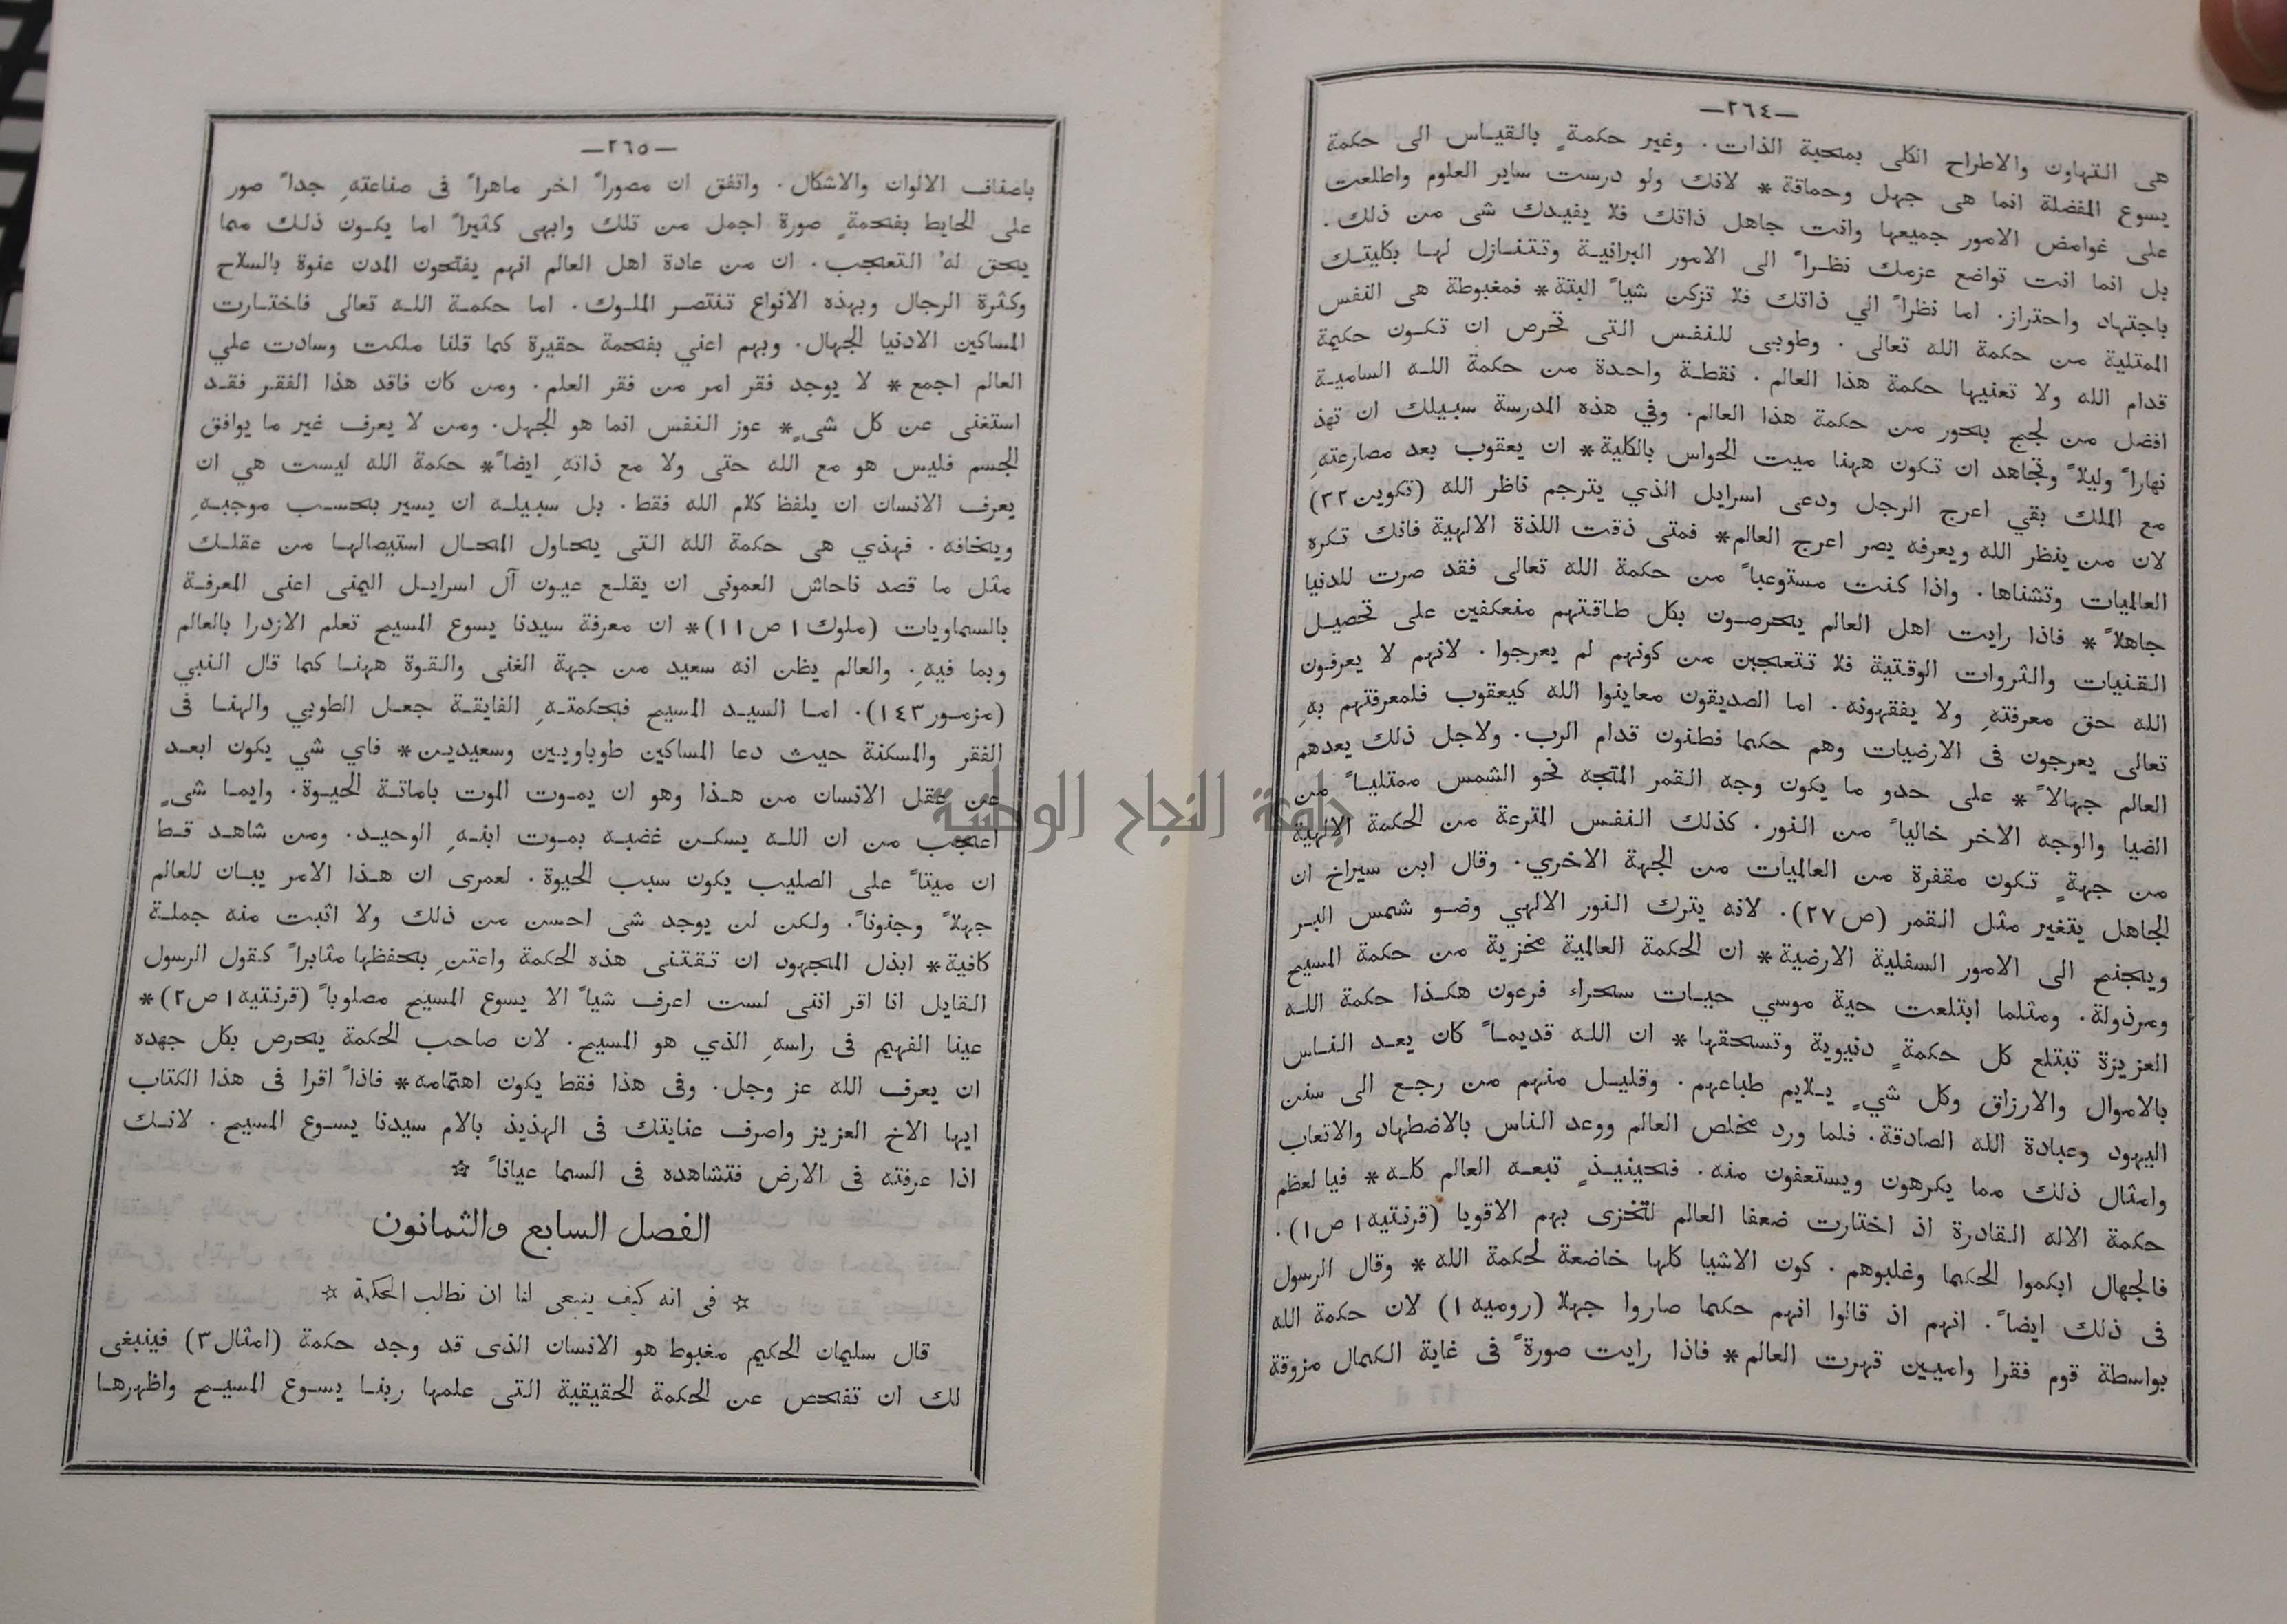 —٢٦٤—
هى التهاون والاطراح الكلى بمحبة الذات. وغير حكمةٍ بالقياس الى حكمة
يسوع المفضلة انما هى جهل وحماقة* لانك ولو درست ساير العلوم واطلعت
على غوامض الامور جميعها وانت جاهل ذاتك فلا يفيدك شى من ذلك.
بل انما انت تواضع عزمك نظراً الى الامور البرانية وتتنازل لها بكليتك
باجتهاد واحتراز. اما نظراً الي ذاتك فلا تزكن شياً البتة* فمغبوطة هى النفس
الممتلية من حكمة الله تعالى. وطوبى للنفس التى تحرص ان تكون حكيمة
قدام الله ولا تعنيها حكمة هذا العالم. نقطة واحدة من حكمة الله السامية
افضل من لجج بحور من حكمة هذا العالم. وفي هذه المدرسة سبيلك ان تهذ
نهاراً وليلاً وتجاهد ان تكون ههنا ميت الحواس بالكلية* ان يعقوب بعد مصارعتهِ
مع الملك بقي اعرج الرجل ودعى اسرايل الذي يترجم ناظر الله (تكوين٣٢)
لان من ينظر الله ويعرفه يصر اعرج العالم* فمتى ذقت اللذة الالهية فانك تكره
العالميات وتشناها. واذا كنت مستوعباً من حكمة الله تعالى فقد صرت للدنيا
جاهلاً* فاذا رايت اهل العالم يحرصون بكل طاقتهم منعكفين على تحصيل
القنيات والثروات الوقتية فلا تتعجبن من كونهم لم يعرجوا. لانهم لا يعرفون
الله حق معرفتهِ ولا يفقهونه. اما الصديقون معاينوا الله كيعقوب فلمعرفتهم بهِ
تعالى يعرجون فى الارضيات وهم حكيما فطنون قدام الرب. ولاجل ذلك يعدهم
العالم جهالاً* على حدو ما يكون وجه القمر المتجه نحو الشمس ممتلياً من
الضيا والوجه الاخر خالياً من النور. كذلك النفس المترعة من الحكمة الالهية
من جهةٍ تكون مقفرة من العالميات من الجهة الاخري. وقال ابن سيراخ ان
الجاهل يتغير مثل القمر (ص٢٧). لانه يترك النور الالهي وضو شمس البر
ويجنح الى الامور السفلية الارضية* ان الحكمة العالمية مخزية من حكمة المسيح
ومرذولة. ومثلما ابتلعت حية موسي حيات سحراء فرعون هكذا حكمة الله
العزيزة تبتلع كل حكمةٍ دنيوية وتسحقها* ان الله قديماً كان يعد الناس
بالاموال والارزاق وكل شيٍ يلايم طباعهم. وقليل منهم من رجع الى سنن
اليهود وعبادة الله الصادقة. فلما ورد مخلص العالم ووعد الناس بالاضطهاد والاتعاب
وامثال ذلك مما يكرهون ويستعفون منه. فحينيذٍ تبعه العالم كله* فيا لعظم
حكمة الاله القادرة اذ اختارت ضعفا العالم لتخزى بهم الاقويا (قرنتيه١ ص١).
فالجهال ابكموا الحكيما وغلبوهم. كون الاشيا كلها خاضعة لحكمة الله* وقال الرسول
فى ذلك ايضاً. انهم اذ قالوا انهم حكيما صاروا جهلا (روميه١) لان حكمة الله
بواسطة قوم فقرا واميين قهرت العالم* فاذا رايت صورةً فى غاية الكمال مزوقة
—٢٦٥—
باصناف الالوان والاشكال. واتفق ان مصوراً اخر ماهراً فى صناعتهِ جداً صور
على الحايط بفحمةٍ صورة اجمل من تلك وابهى كثيراً اما يكون ذلك مما
يحق له التعجب. ان من عادة اهل العالم انهم يفتحون المدن عنوة بالسلاح
وكثرة الرجال وبهذه الانواع تنتصر الملوك. اما حكمة الله تعالى فاختارت
المساكين الادنيا الجهال. وبهم اعني بفحمة حقيرة كما قلنا ملكت وسادت علي
العالم اجمع* لا يوجد فقر امر من فقر العلم. ومن كان فاقد هذا الفقر فقد
استغنى عن كل شىٍ* عوز النفس انما هو الجهل. ومن لا يعرف غير ما يوافق
الجسم فليس هو مع الله حتى ولا مع ذاتهِ ايضاً* حكمة الله ليست هي ان
يعرف الانسان ان يلفظ كلام الله فقط. بل سبيله ان يسير بحسب موجبهِ
ويخافه. فهذي هى حكمة الله التى يحاول المحال استيصالها من عقلك
مثل ما قصد ناحاش العمونى ان يقلع عيون آل اسرايل اليمنى اعنى المعرفة
بالسماويات (ملوك١ ص١١)* ان معرفة سيدنا يسوع المسيح تعلم الازدرا بالعالم
وبما فيهِ. والعالم يظن انه سعيد من جهة الغنى والقوة ههنا كما قال النبي
(مزمور١٤٣). اما السيد المسيح فبحكمتهِ الفايقة جعل الطوبي والهنا فى
الفقر والمسكنة حيث دعا المساكين طوباويين وسعيدين* فاي شي يكون ابعد
عن عقل الانسان من هذا وهو ان يموت الموت باماتة الحيوة. وايما شىٍ
اعجب من ان الله يسكن غضبه بموت ابنهِ الوحيد. ومن شاهد قط
ان ميتاً على الصليب يكون سبب الحيوة. لعمرى ان هذا الامر يبان للعالم
جهلاً وجنوناً. ولكن لن يوجد شى احسن من ذلك ولا اثبت منه جملة
كافية* ابذل المجهود ان تقتنى هذه الحكمة واعتنِ بحفظها مثابراً كقول الرسول
القايل انا اقر اننى لست اعرف شياً الا يسوع المسيح مصلوباً (قرنتيه١ ص٢)*
عينا الفهيم فى راسهِ الذي هو المسيح. لان صاحب الحكمة يحرص بكل جهده
ان يعرف الله عز وجل. وفى هذا فقط يكون اهتمامه* فاذاً اقرا فى هذا الكتاب
ايها الاخ العزيز واصرف عنايتك فى الهذيذ بالام سيدنا يسوع المسيح. لانك
اذا عرفته فى الارض فتشاهده فى السما عياناً ☆
الفصل السابع والثمانون
☆ فى انه كيف ينبغى لنا ان نطالب الحكمة ☆
قال سليمان الحكيم مغبوط هو الانسان الذى قد وجد حكمة (امثال٣) فينبغى
لك ان تفحص عن الحكمة الحقيقية التى علمها ربنا يسوع المسيح واظهرها
جامعة النجاح الوطنية